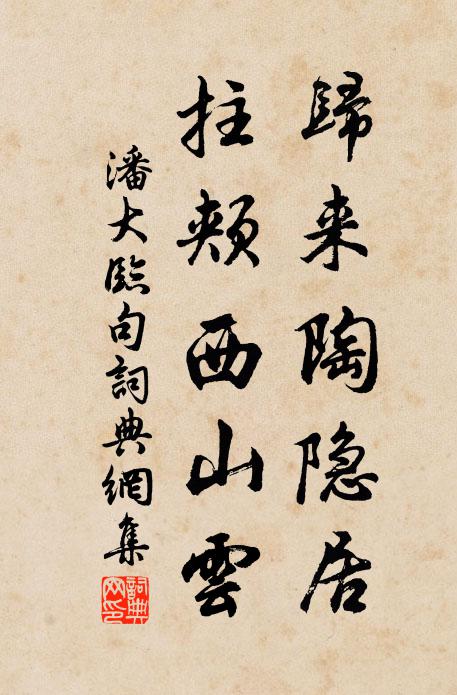 歸来陶隐居
拄頰西山雲
潘大臨句詞典網集
詞典网印